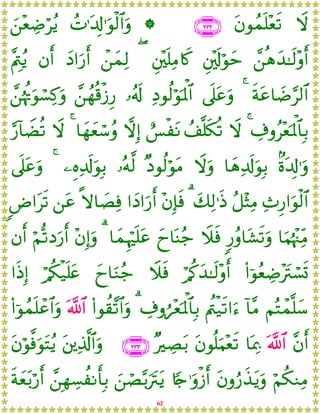 لَا تَعْلَمُونَ ﴿٢٣٢﴾ ۞ وَٱلْوَٰلِدَٰتُ يُرْضِعْنَ
أَوْلَـٰدَهُنَّ حَوْلَيْنِ كَامِلَيْنِ ۖ لِمَنْ أَرَادَ أَن يُتِمَّ
ٱلرَّضَاعَةَ ۚ وَعَلَى ٱلْمَوْلُودِ لَهُۥ رِزْقُهُنَّ وَكِسْوَتُهُنَّ
بِٱلْمَعْرُوفِ ۚ لَا تُكَلَّفُ نَفْسٌ إِلَّا وُسْعَهَا ۚ لَا تُضَآرَّ
وَٰلِدَةٌۢ بِوَلَدِهَا وَلَا مَوْلُودٌ لَّهُۥ بِوَلَدِهِۦ ۚ وَعَلَى
ٱلْوَارِثِ مِثْلُ ذَٰلِكَ ۗ فَإِنْ أَرَادَا فِصَالًا عَن تَرَاضٍ
مِّنْهُمَا وَتَشَاوُرٍ فَلَا جُنَاحَ عَلَيْهِمَا ۗ وَإِنْ أَرَدتُّمْ أَن
تَسْتَرْضِعُوٓا۟ أَوْلَـٰدَكُمْ فَلَا جُنَاحَ عَلَيْكُمْ إِذَا
سَلَّمْتُم مَّآ ءَاتَيْتُم بِٱلْمَعْرُوفِ ۗ وَٱتَّقُوا۟ ٱللَّهَ وَٱعْلَمُوٓا۟
أَنَّ ٱللَّهَ بِمَا تَعْمَلُونَ بَصِيرٌ ﴿٢٣٣﴾ وَٱلَّذِينَ يُتَوَفَّوْنَ
مِنكُمْ وَيَذَرُونَ أَزْوَٰجًا يَتَرَبَّصْنَ بِأَنفُسِهِنَّ أَرْبَعَةَ
62